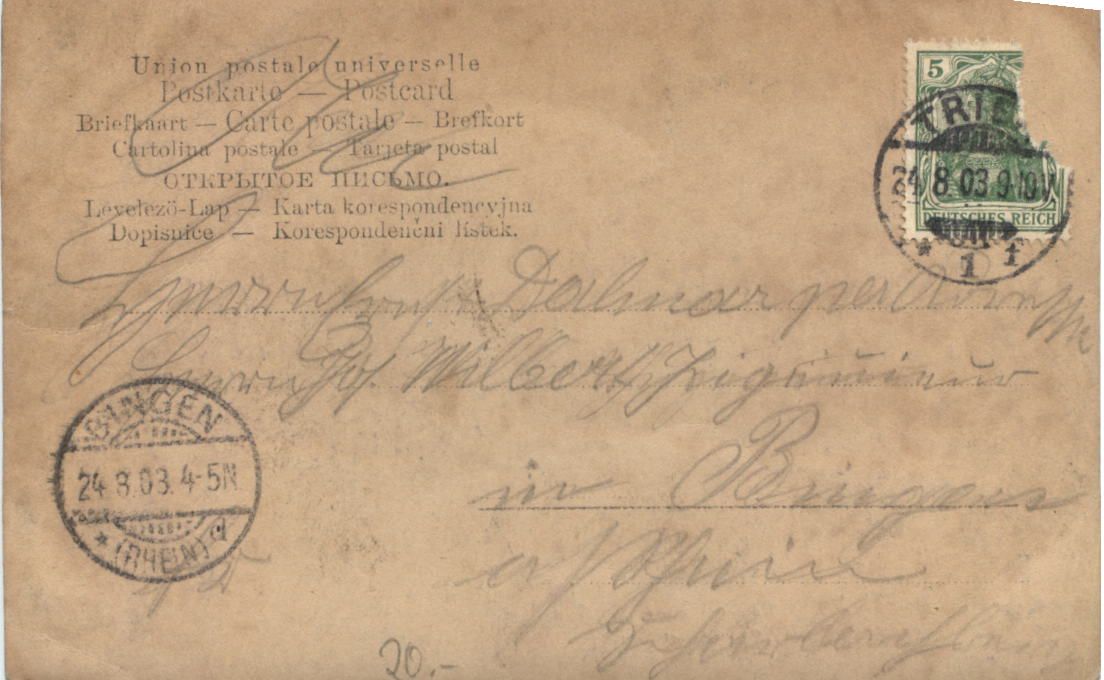 Union postale universelle
Postkarte — Postcard
Briefkaart — Carte postale — Brefkort
Cartolina postale — Tarjeta postal
ОТКРЫТОЕ ПИСЬМО.
Levelező-Lap — Karta korespondencyjna
Dopisnice — Korespondenční lístek.
5
DEUTSCHES REICH
TRIE
24.8.03.9-10V
* 1 f
Herrn Dalmar per Adresse
Herrn Jos. Wilbert
in Bingen
a/Rhein
BINGEN
24.8.03.4-5N
* (RHEIN)
20.-